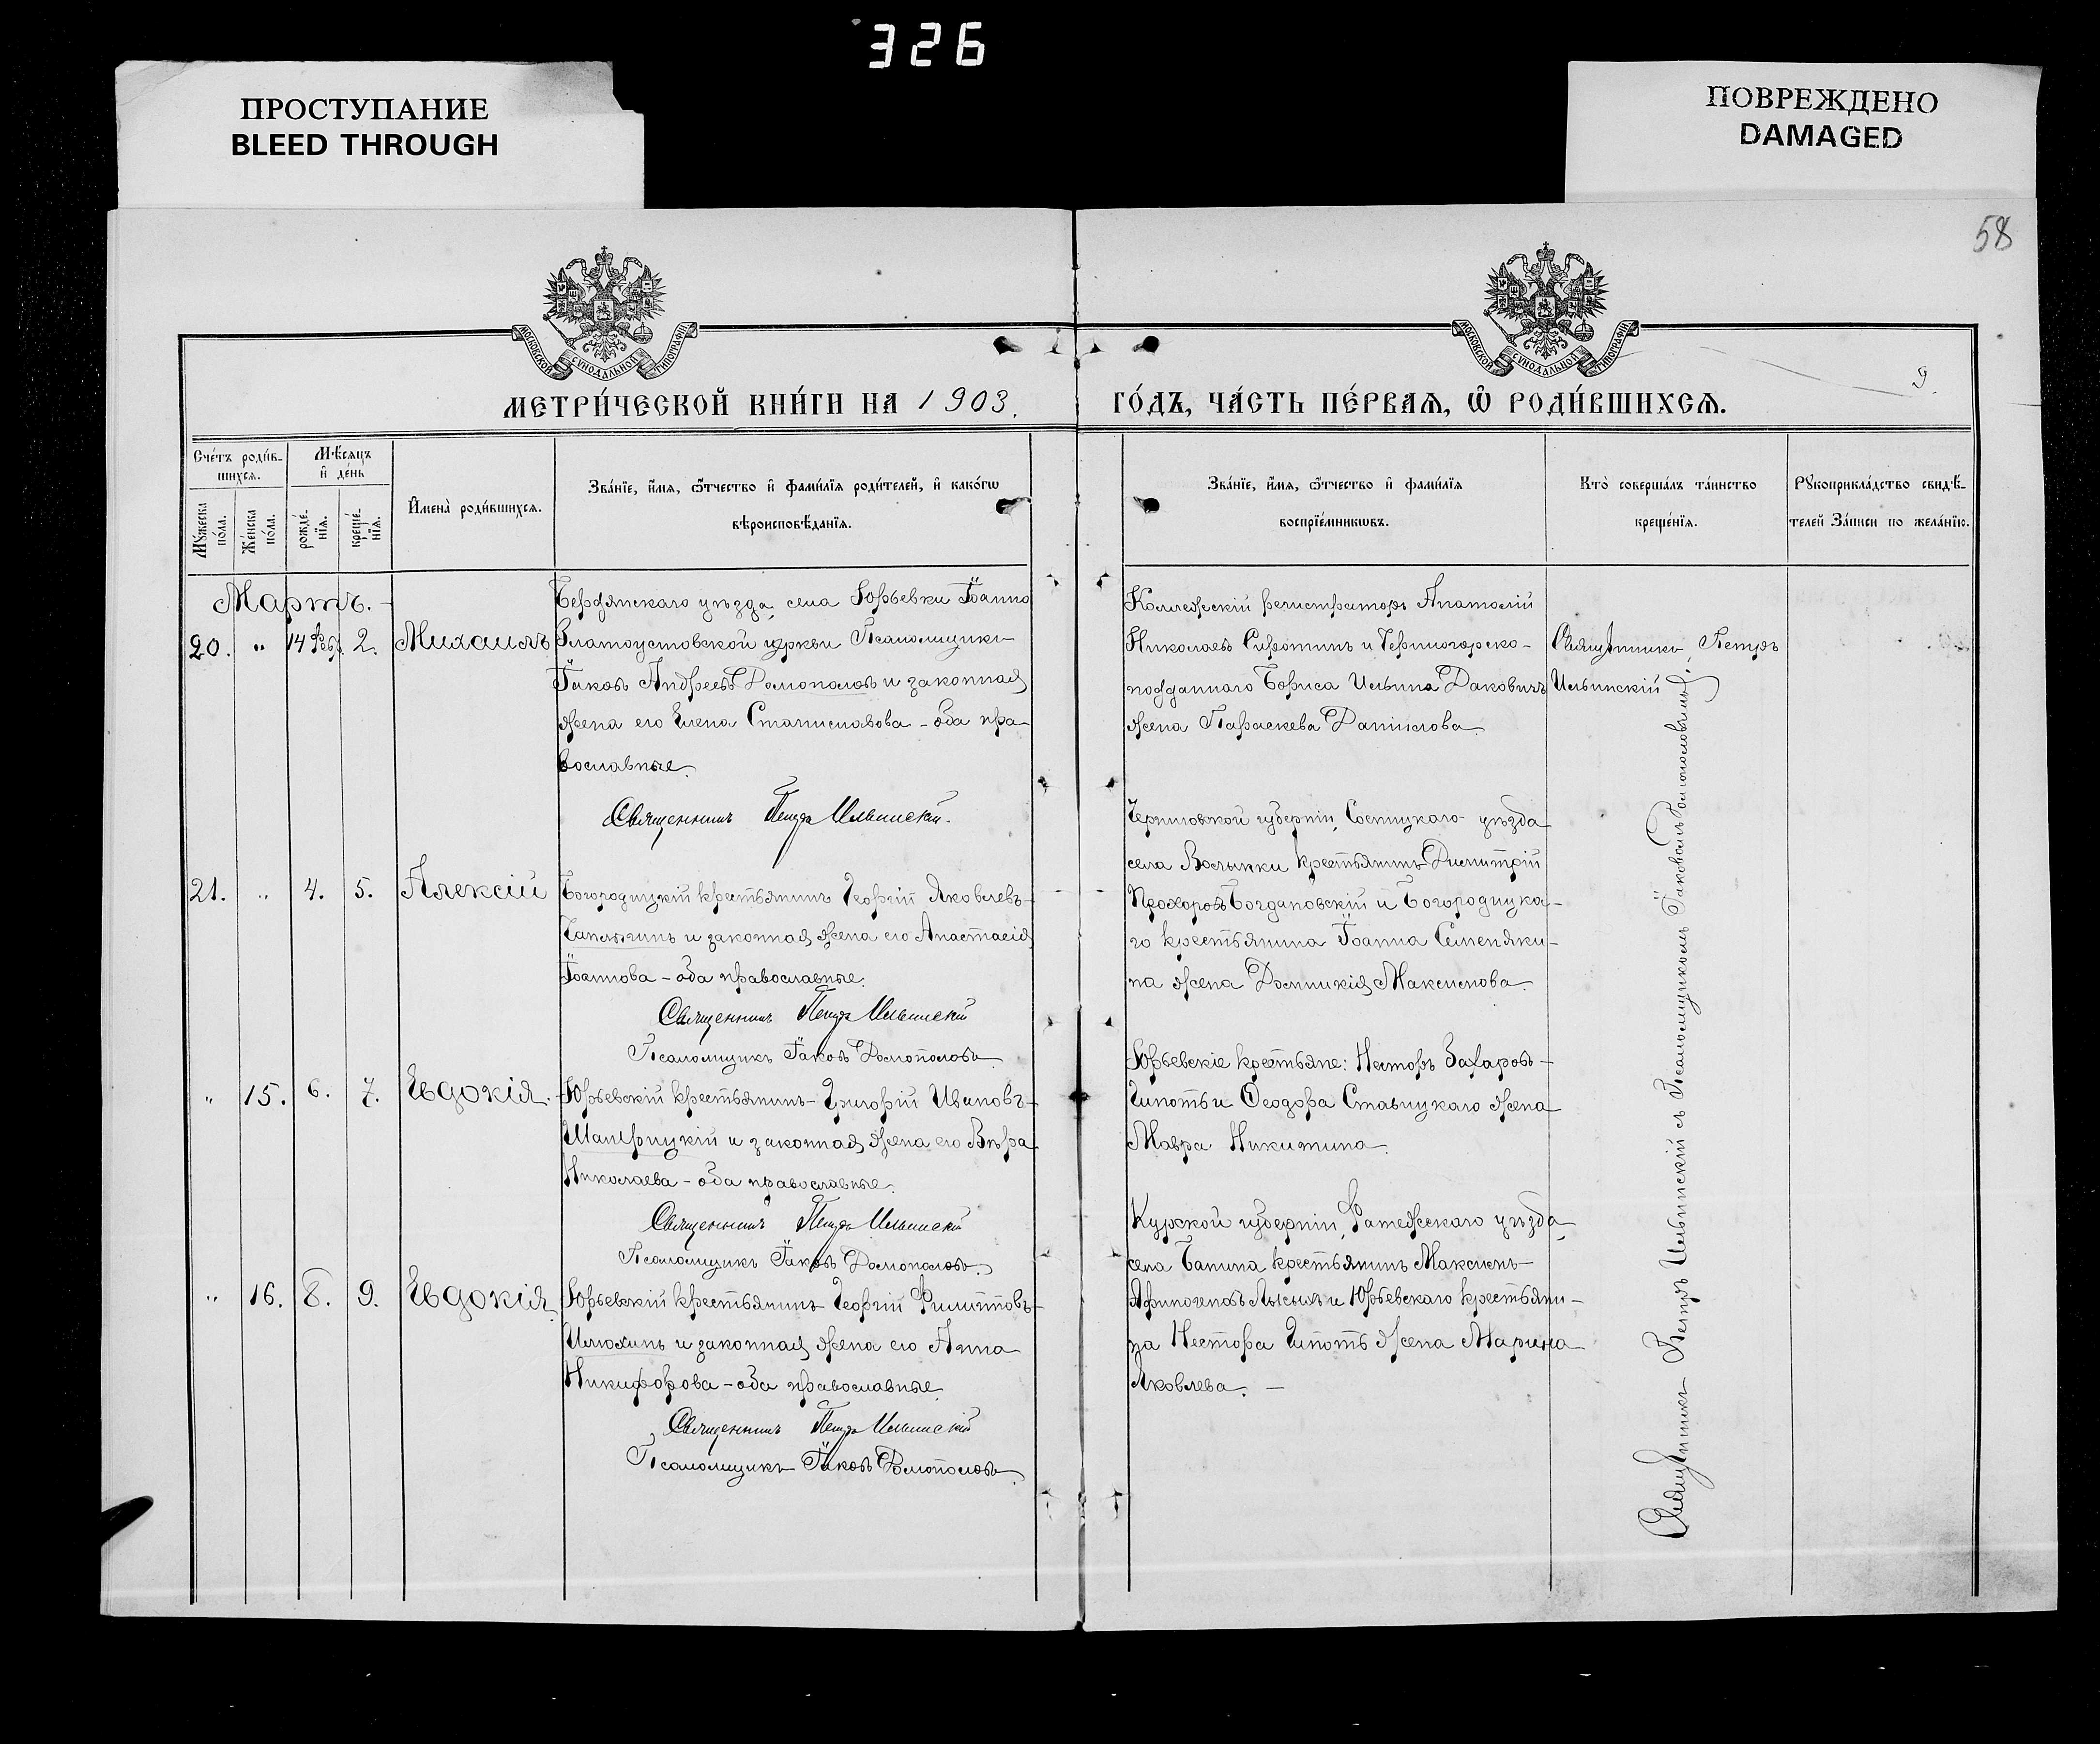 326
ПРОСТУПАНИЕ
BLEED THROUGH
ПОВРЕЖДЕНО
DAMAGED
58
МОСКОВСКОЙ СУНОДАЛЬНОЙ ТИПОГРАФІИ
МОСКОВСКОЙ СУНОДАЛЬНОЙ ТИПОГРАФІИ
9.
МЕТРИ́ЧЕСКОЙ КНИ́ГИ НА 1903.
ГО́ДЪ, ЧА́СТЬ ПЕ́РВАѦ, Ѡ҆ РОДИ́ВШИХСѦ.
Сче́тъ роди́в-
шихсѧ.
Мꙋ́жеска по́ла.
Же́нска по́ла.
Мѣ́сѧцъ и҆ де́нь
рожде́-
нїѧ.
креще́-
нїѧ.
И҆мена̀ роди́вшихсѧ.
Зва́нїе, и҆́мѧ, ѻ҆́тчество и҆ фами́лїѧ роди́телей, и҆ како́гѡ
вѣроисповѣ́данїѧ.
Зва́нїе, и҆́мѧ, ѻ҆́тчество и҆ фами́лїѧ
воспрїе́мникѡвъ.
Кто̀ соверша́лъ та́инство
креще́нїѧ.
Рꙋкоприкла́дство свидѣ́-
телей За́писи по жела́нїю.
Мартъ.
20. " 14 Фев. 2. Михаилъ
Бердянскаго уѣзда, села Юрьевки Іоанно
Златоустовской церкви Псаломщикъ
Іаковъ Андреевъ Домополовъ и законная
жена его Елена Станиславова – оба пра-
вославные.
Священникъ Петръ Ильинскій.
Коллежскій регистраторъ Анатолій
Николаевъ Сиротинъ и Черногорско-
подданнаго Бориса Ильина Даковичъ
жена Параскева Даніилова.
Священникъ Петръ
Ильинскій
21. " 4. 5. Алексій
Богородицкій крестьянинъ Георгій Яковлевъ
Чаплыгинъ и законная жена его Анастасія
Іоаннова – оба православные.
Священникъ Петръ Ильинскій
Псаломщикъ Іаковъ Домополовъ
Черниговской губерніи, Сосницкаго уѣзда
села Волынки крестьянинъ Димитрій
Прохоровъ Богдановскій и Богородицка-
го крестьянина Іоанна Семеняки-
на жена Домникія Максимова.
" 15. 6. 7. Евдокія.
Юрьевскій крестьянинъ Григорій Ивановъ
и законная жена его Вѣра
Николаева – оба православные.
Священникъ Петръ Ильинскій
Псаломщикъ Іаковъ Домополовъ.
Юрьевскіе крестьяне: Несторъ Захаровъ
Чипоть и Ѳеодора Ставицкаго жена
Мавра Никитина.
" 16. 8. 9. Евдокія
Юрьевскій крестьянинъ Георгій Филипповъ
Илюхинъ и законная жена его Анна
Никифорова – оба православные.
Священникъ Петръ Ильинскій
Псаломщикъ Іаковъ Домополовъ
Курской губерніи, Фатежскаго уѣзда,
села Банина крестьянинъ Максимъ
Афиногеновъ Лысыхъ и Юрьевскаго крестьяни-
на Нестора Чипоть жена Марина
Яковлева. –
Священникъ Петръ Ильинскій съ Псаломщикомъ Іаковомъ Домополовымъ.